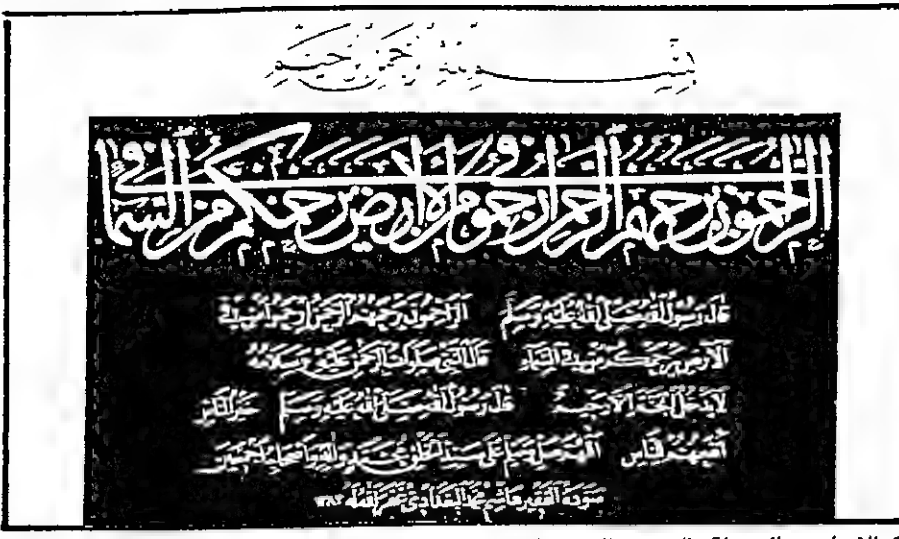 بسم الله الرحمن الرحيم
الراحمون يرحمهم الرحمن ارحموا من في الأرض يرحمكم من في السماء
قال رسول الله صلى الله عليه وسلم الراحمون يرحمهم الرحمن ارحموا من في
الأرض يرحمكم من في السماء قال النبي صلوات الرحمن عليه وسلامه
لا يدخل الجنة إلا رحيم قال رسول الله صلى الله عليه وسلم خير الناس
أنفعهم للناس اللهم صل وسلم على سيد الخلق محمد وآله وأصحابه أجمعين
سوده الفقير هاشم محمد البغدادي غفر الله له ١٣٨٢